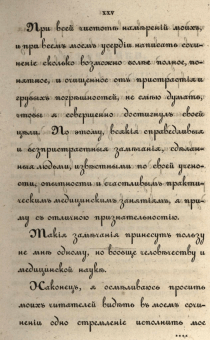 XXV
При всей чистотѣ намѣреній моихъ,
и при всемъ моемъ усердіи написать сочи-
неніе сколько возможно болѣе полное, по-
нятное, и очищенное отъ пристрастія и
грубыхъ погрѣшностей, не смѣю думать,
чтобы я совершенно достигнулъ своей
цѣли. По этому, всякія справедливыя
и безпристрастныя замѣчанія, сдѣлан-
ныя людьми, извѣстными по своей учено-
сти, опытности и счастливымъ практи-
ческимъ медицинскимъ занятіямъ, я при-
му съ отличною признательностію.
Такія замѣчанія принесутъ пользу
не мнѣ одному, но вообще человѣчеству и
медицинской наукѣ.
Наконецъ, я осмѣливаюсь просить
моихъ читателей видѣть въ моемъ сочи-
неніи одно стремленіе исполнить мое